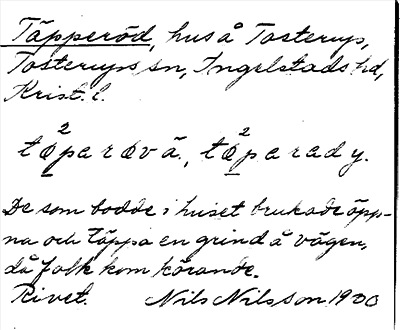 Täpperöd, hus å Tosterup,
Tosterups sn, Ingelstads hd,
Krist. l.
De som bodde i huset brukade öpp-
na och täppa en grind å vägen,
då folk kom körande.
Rivet. Nils Nilsson 1900